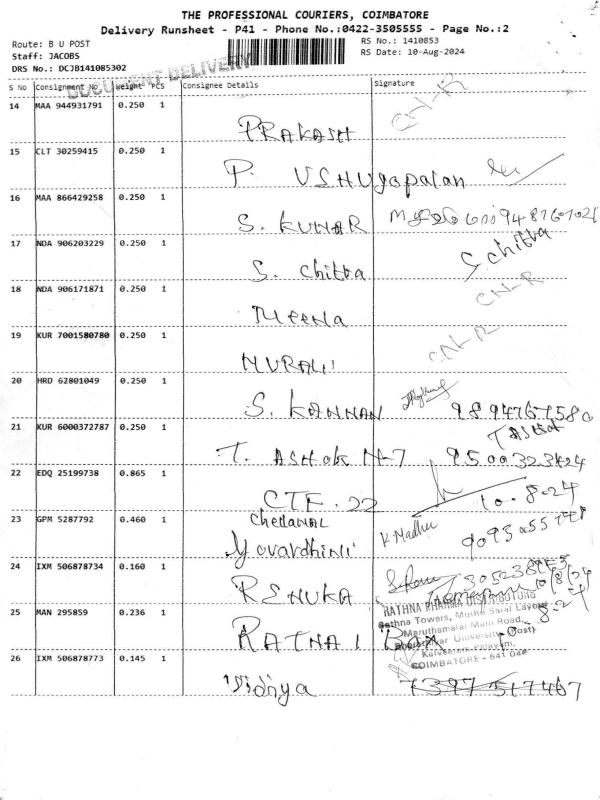 THE PROFESSIONAL COURIERS, COIMBATORE
Delivery Runsheet - P41 - Phone No.:0422-3505555 - Page No.:2
Route: B U POST
RS No.: 1410853
Staff: JACOBS
RS Date: 10-Aug-2024
DRS No.: DCJB141085302
DOCUMENT DELIVERY
S No Consignment No Weight PCS Consignee Details Signature
14 MAA 944931791 0.250 1
PRAKASH CN-R
15 CLT 30259415 0.250 1
P. USHUgopalan
16 MAA 866429258 0.250 1
S. KUMAR
17 NDA 906203229 0.250 1
S. Chitra S Chitra
18 NDA 906171871 0.250 1
Meena CN-R
19 KUR 7001580780 0.250 1
MURALI CN-R
20 HRD 62801049 0.250 1
S. KANNAN 9894767580
21 KUR 6000372787 0.250 1
T. ASHOK N-7 T ASHOK 9500323424
22 EDQ 25199738 0.865 1
CTF. 22 10.8.24
23 GPM 5287792 0.460 1
Chettanal
Yovardhini K Madhu
24 IXM 506878734 0.160 1
RENUKA 10/8/24
25 MAN 295859 0.236 1
RATNA
RATHNA DISTRIBUTORS
Rathna Towers,
Maruthamalai Main Road,
Bharathiar University (Post)
Kalveerampalayam,
COIMBATORE - 641 046
26 IXM 506878773 0.145 1
Vidhya 7397517467